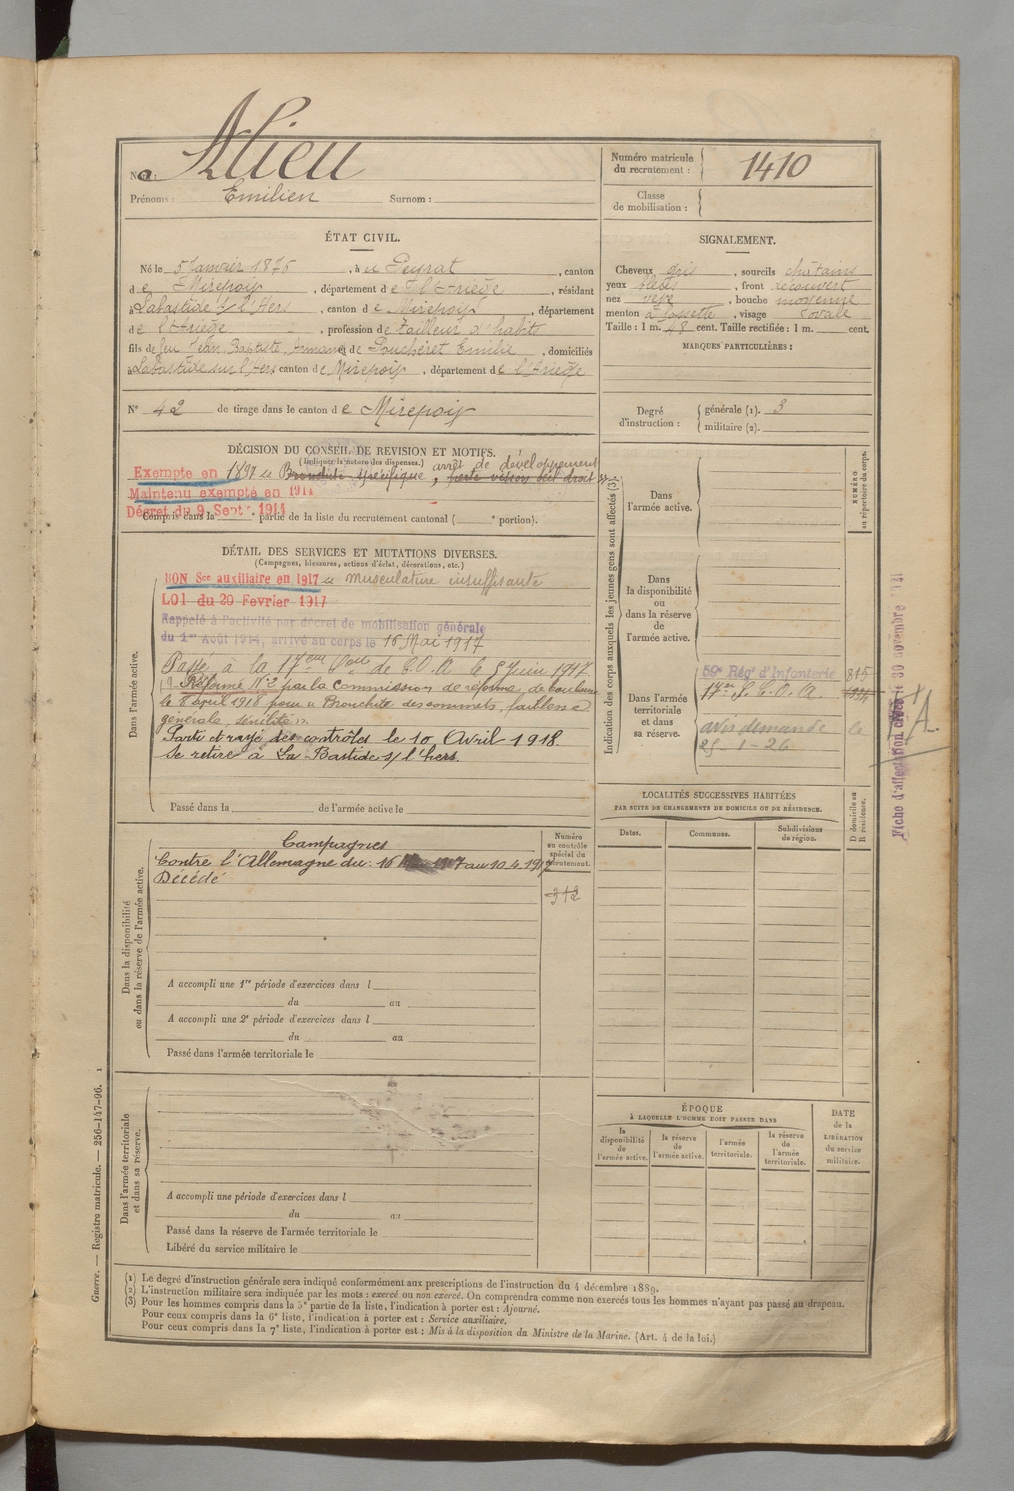 Nom : Alieu
Prénoms : Emilien Surnom :
Numéro matricule du recrutement : 1410
Classe de mobilisation :
ÉTAT CIVIL.
Né le 5 Janvier 1876, à u Peyrat, canton
d e Mirepoix, département d e l'Ariège, résidant
à Labastide s/ l'Hers, canton d e Mirepoix, département
d e l'Ariège, profession d e tailleur d'habits
fils de feu Jean, Baptiste, Armand et de Soucheret Emilie, domiciliés
à Labastide sur l'Hers canton d e Mirepoix, département d e l'Ariège
N° 42 de tirage dans le canton d e Mirepoix
SIGNALEMENT.
Cheveux gris, sourcils châtains
yeux bleus, front recouvert
nez, bouche moyenne
menton à fossette, visage ovale
Taille : 1 m. 48 cent. Taille rectifiée : 1 m. cent.
MARQUES PARTICULIÈRES :
Degré d'instruction : générale (1). 3
militaire (2).
DÉCISION DU CONSEIL DE REVISION ET MOTIFS.
(Indiquer la nature des dispenses.)
arrêt de développement
Exempté en 1897 Bronchite spécifique, perte vision œil droit
Maintenu exempté en 1914
Décret du 9 Sept 1914
Compris dans la ᵉ partie de la liste du recrutement cantonal ( ᵉ portion).
DÉTAIL DES SERVICES ET MUTATIONS DIVERSES.
(Campagnes, blessures, actions d'éclat, décorations, etc.)
Dans l'armée active.
BON Sce auxiliaire en 1917 musculature insuffisante
LOI du 20 Fevrier 1917
Rappelé à l'activité par décret de mobilisation générale
du 1er Août 1914, arrivé au corps le 16 Mai 1917
Passé à la 17eme Son de C.O.A le 5 Juin 1917
Réformé N°2 par la Commission de réforme de Toulouse
le 8 april 1918 pour « Bronchite des sommets, faiblesse
générale, sénilité ».
Parti et rayé des contrôles le 10 Avril 1918.
Se retire à La Bastide s/ l'hers.
Passé dans la de l'armée active le
Indication des corps auxquels les jeunes gens sont affectés (3).
NUMÉRO au répertoire du corps.
Dans l'armée active.
Dans la disponibilité ou dans la réserve de l'armée active.
Dans l'armée territoriale et dans sa réserve.
59e Rég' d'Infanterie 815
17e S.C.O.A.
avis demandé le
25-1-26
Fiche d'affectation 30 novembre
A.
LOCALITÉS SUCCESSIVES HABITÉES
PAR SUITE DE CHANGEMENTS DE DOMICILE OU DE RÉSIDENCE.
Dates. Communes. Subdivisions de région. D domicile ou R résidence.
Dans la disponibilité ou dans la réserve de l'armée active.
Numéro au contrôle spécial du recrutement.
Campagnes
Contre l'Allemagne du : 16 Mai 1917 au 10.4.1917
Décédé
312
A accompli une 1re période d'exercices dans l
du au
A accompli une 2e période d'exercices dans l
du au
Passé dans l'armée territoriale le
Dans l'armée territoriale et dans sa réserve.
A accompli une période d'exercices dans l
du au
Passé dans la réserve de l'armée territoriale le
Libéré du service militaire le
ÉPOQUE
À LAQUELLE L'HOMME DOIT PASSER DANS
la disponibilité de l'armée active. la réserve de l'armée active. l'armée territoriale. la réserve de l'armée territoriale.
DATE de la LIBÉRATION du service militaire.
(1) Le degré d'instruction générale sera indiqué conformément aux prescriptions de l'instruction du 4 décembre 1889.
(2) L'instruction militaire sera indiquée par les mots : exercé ou non exercé. On comprendra comme non exercés tous les hommes n'ayant pas passé au drapeau.
(3) Pour les hommes compris dans la 5e partie de la liste, l'indication à porter est : Ajourné.
Pour ceux compris dans la 6e liste, l'indication à porter est : Service auxiliaire.
Pour ceux compris dans la 7e liste, l'indication à porter est : Mis à la disposition du Ministre de la Marine. (Art. 4 de la loi.)
Guerre. — Registre matricule. — 256-147-96. 1